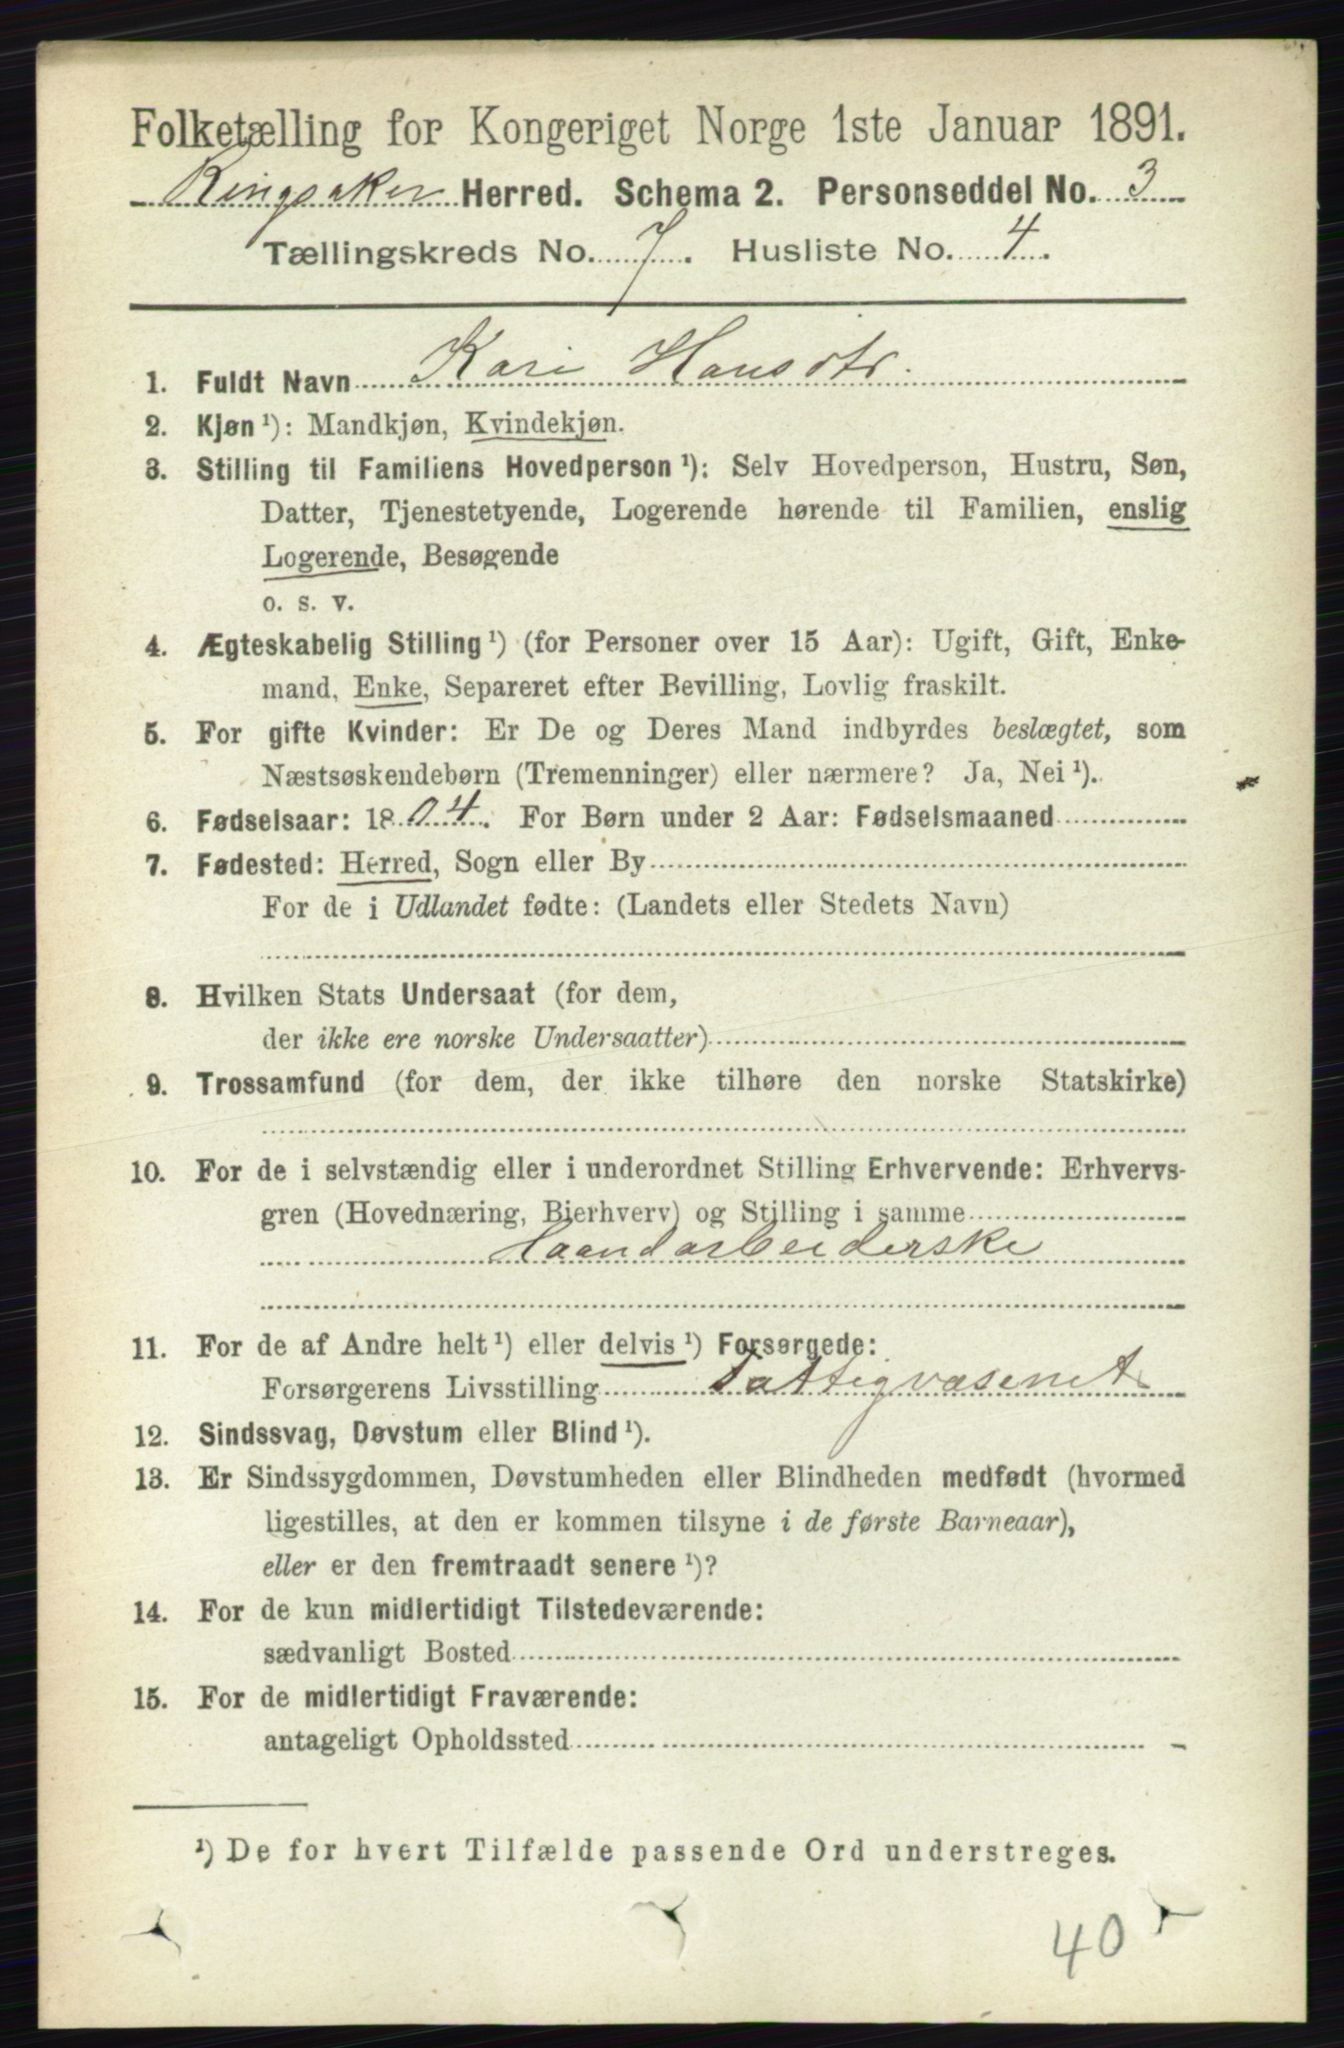 Folketælling for Kongeriget Norge 1ste Januar 1891.
Ringsaker Herred. Schema 2. Personseddel No. 3
Tællingskreds No. 7. Husliste No. 4.
1. Fuldt Navn Kari Hansdtr.
2. Kjøn ¹): Mandkjøn, Kvindekjøn.
3. Stilling til Familiens Hovedperson ¹): Selv Hovedperson, Hustru, Søn,
Datter, Tjenestetyende, Logerende hørende til Familien, enslig
Logerende, Besøgende
o. s. v.
4. Ægteskabelig Stilling ¹) (for Personer over 15 Aar): Ugift, Gift, Enke-
mand, Enke, Separeret efter Bevilling, Lovlig fraskilt.
5. For gifte Kvinder: Er De og Deres Mand indbyrdes beslægtet, som
Næstsøskendebørn (Tremenninger) eller nærmere? Ja, Nei ¹).
6. Fødselsaar: 1804. For Børn under 2 Aar: Fødselsmaaned
7. Fødested: Herred, Sogn eller By
For de i Udlandet fødte: (Landets eller Stedets Navn)
8. Hvilken Stats Undersaat (for dem,
der ikke ere norske Undersaatter)
9. Trossamfund (for dem, der ikke tilhøre den norske Statskirke)
10. For de i selvstændig eller i underordnet Stilling Erhvervende: Erhvervs-
gren (Hovednæring, Bierhverv) og Stilling i samme
Haandarbeiderske
11. For de af Andre helt ¹) eller delvis ¹) Forsørgede:
Forsørgerens Livsstilling Fattigvæsenet
12. Sindssvag, Døvstum eller Blind ¹).
13. Er Sindssygdommen, Døvstumheden eller Blindheden medfødt (hvormed
ligestilles, at den er kommen tilsyne i de første Barneaar),
eller er den fremtraadt senere ¹)?
14. For de kun midlertidigt Tilstedeværende:
sædvanligt Bosted
15. For de midlertidigt Fraværende:
antageligt Opholdssted
¹) De for hvert Tilfælde passende Ord understreges.
40